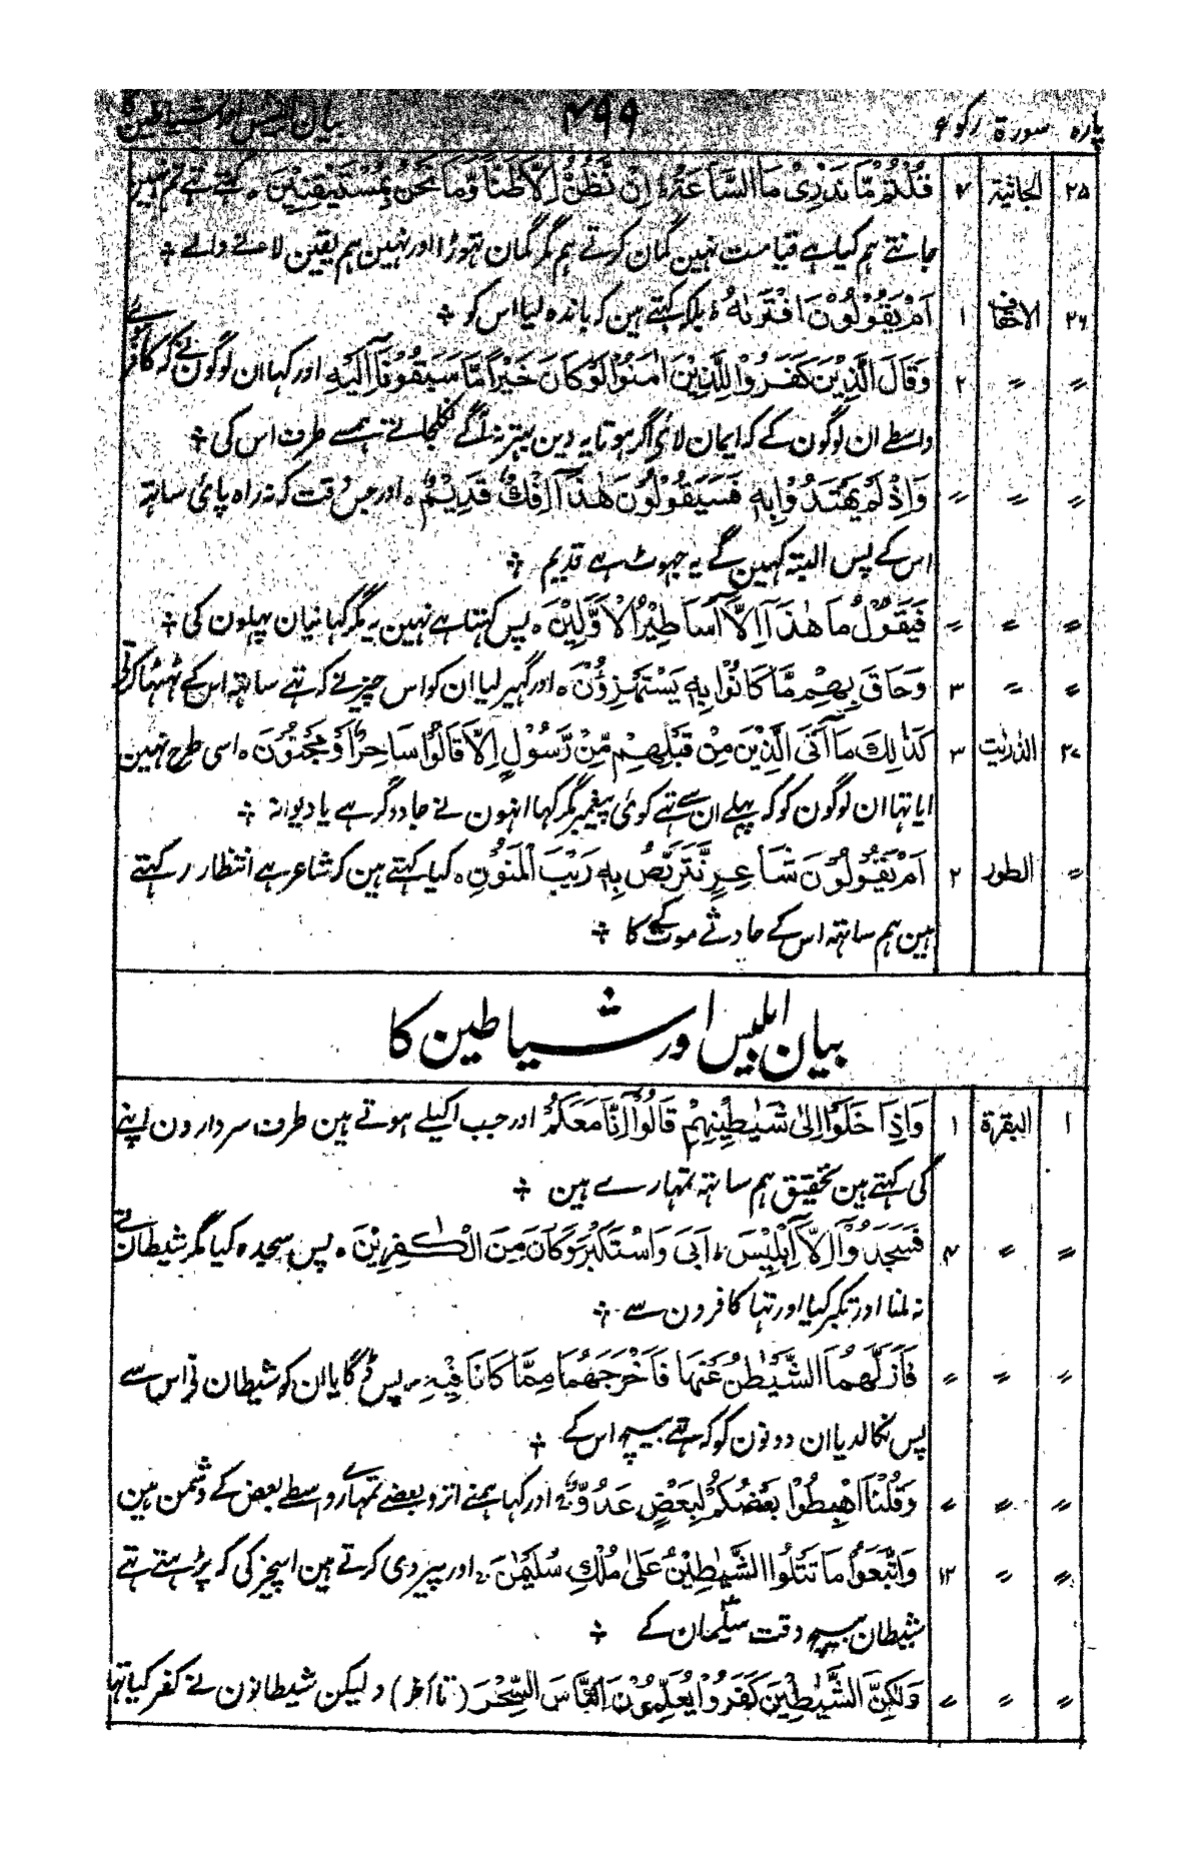 پاره سورة رکوع ۴۹۹ بیان ابلیس اور شیاطین کا
۲۵ الجاثیة ۷ قُلْتُمْ مَّا نَدْرِیْ مَا السَّاعَةُ اِنْ نَّظُنُّ اِلَّا ظَنًّا وَّمَا نَحْنُ بِمُسْتَیْقِنِیْنَ ۔ کہتے تہے تم نہین
جانتے ہم کیا ہے قیامت نہین گمان کرتے ہم مگر گمان تہوڑا اور نہین ہم یقین لانے والے ÷
۲۶ الاحقاف ۱ اَمْ یَقُوْلُوْنَ افْتَرٰىهُ ؕ بلکہ کہتے ہین کہ باندہ لیا اس کو ÷
〃 〃 ۲ وَقَالَ الَّذِیْنَ کَفَرُوْا لِلَّذِیْنَ اٰمَنُوْا لَوْ کَانَ خَیْرًا مَّا سَبَقُوْنَاۤ اِلَیْهِ اور کہا ان لوگون نے کہ کافر ہوئے
واسطے ان لوگون کے کہ ایمان لائے اگر ہوتا یہ دین بہتر نہ آگے نکلجاتے ہمسے طرف اس کی ÷
〃 〃 〃 وَاِذْ لَمْ یَهْتَدُوْا بِهٖ فَسَیَقُوْلُوْنَ هٰذَاۤ اِفْكٌ قَدِیْمٌ ۔ اور جس وقت کہ نہ راہ پائی ساتہ
اس کے پس البتہ کہین گے یہ جہوٹ ہے قدیم ÷
〃 〃 〃 فَیَقُوْلُ مَا هٰذَاۤ اِلَّاۤ اَسَاطِیْرُ الْاَوَّلِیْنَ ۔ پس کہتا ہے نہین یہ مگر کہانیان پہلون کی ÷
〃 〃 ۳ وَحَاقَ بِهِمْ مَّا کَانُوْا بِهٖ یَسْتَهْزِؤُنَ ۔ اور گہیر لیا ان کو اس چیز نے کہ تہے ساتہ اس کے ٹہٹہا کرتے
۲۷ الذریٰت ۳ کَذٰلِكَ مَاۤ اَتَی الَّذِیْنَ مِنْ قَبْلِهِمْ مِّنْ رَّسُوْلٍ اِلَّا قَالُوْا سَاحِرٌ اَوْ مَجْنُوْنٌ ۔ اسی طرح نہین
ایا تہا ان لوگون کو کہ پہلے ان سے تہے کوئی پیغمبر مگر کہا انہون نے جادوگر ہے یا دیوانہ ÷
〃 الطور ۲ اَمْ یَقُوْلُوْنَ شَاعِرٌ نَّتَرَبَّصُ بِهٖ رَیْبَ الْمَنُوْنِ ۔ کیا کہتے ہین کہ شاعر ہے انتظار رکہتے
ہین ہم ساتہ اس کے حادثے موت کے کا ÷
بیان ابلیس اور شیاطین کا
۱ البقرة ۱ وَاِذَا خَلَوْا اِلٰی شَیٰطِیْنِهِمْ قَالُوْۤا اِنَّا مَعَكُمْ اور جب اکیلے ہوتے ہین طرف سردارون اپنے
کی کہتے ہین تحقیق ہم ساتہ تمہارے ہین ÷
〃 〃 ۴ فَسَجَدُوْۤا اِلَّاۤ اِبْلِیْسَ ؕ اَبٰی وَاسْتَكْبَرَ وَکَانَ مِنَ الْكٰفِرِیْنَ ۔ پس سجدہ کیا مگر شیطان نے
نہ مانا اور تکبر کیا اور تہا کافرون سے ÷
〃 〃 〃 فَاَزَلَّهُمَا الشَّیْطٰنُ عَنْهَا فَاَخْرَجَهُمَا مِمَّا کَانَا فِیْهِ ۔ پس ڈگایا ان کو شیطان نے اس سے
پس نکالدیا ان دونون کو کہ تہے بیچ اس کے ÷
〃 〃 〃 وَقُلْنَا اهْبِطُوْا بَعْضُكُمْ لِبَعْضٍ عَدُوٌّ ۚ اور کہا ہمنے اترو بعضے تمہارے واسطے بعض کے دشمن ہین
〃 〃 ۱۲ وَاتَّبَعُوْا مَا تَتْلُوا الشَّیٰطِیْنُ عَلٰی مُلْكِ سُلَیْمٰنَ ۚ اور پیروی کرتے ہین اسچیز کی کہ پڑہتے تہے
شیطان بیچ وقت سلیمان کے ÷
〃 〃 〃 وَلٰكِنَّ الشَّیٰطِیْنَ كَفَرُوْا یُعَلِّمُوْنَ النَّاسَ السِّحْرَ (تا آخر) و لیکن شیطانون نے کفر کیا تہا